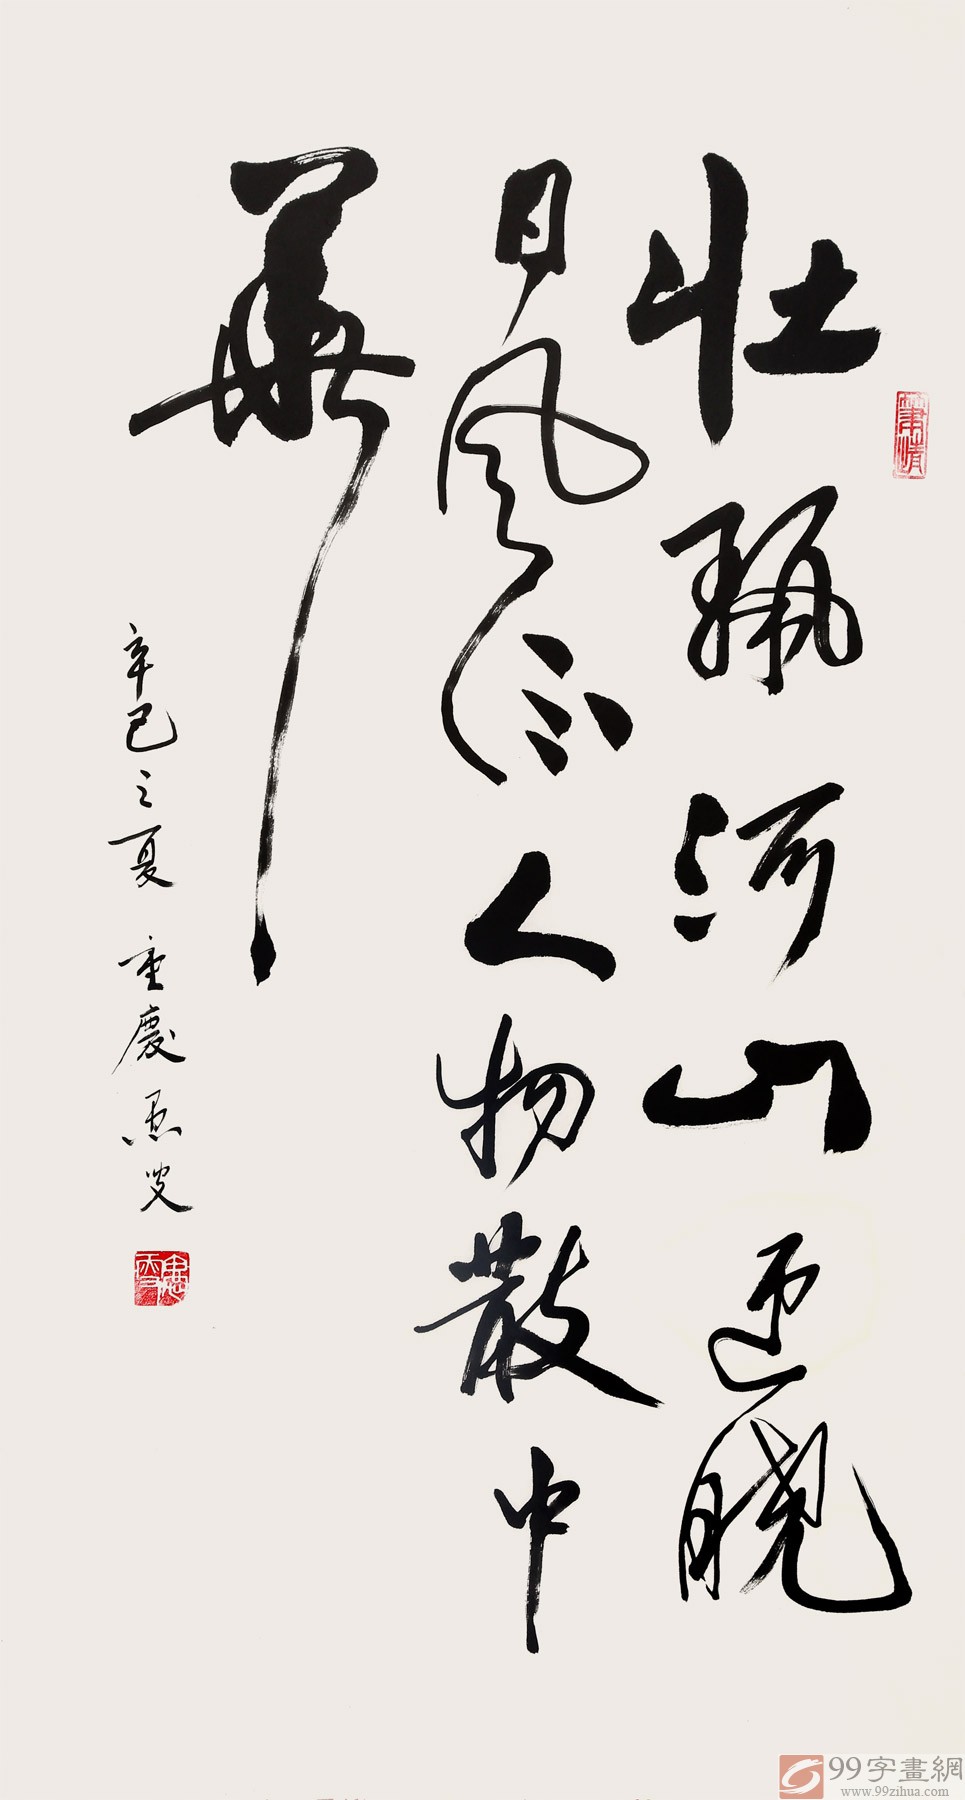 壮河山迎晓
日风流人物散中
華
辛巳之夏 重慶愚叟
99字畫網
www.99zihua.com